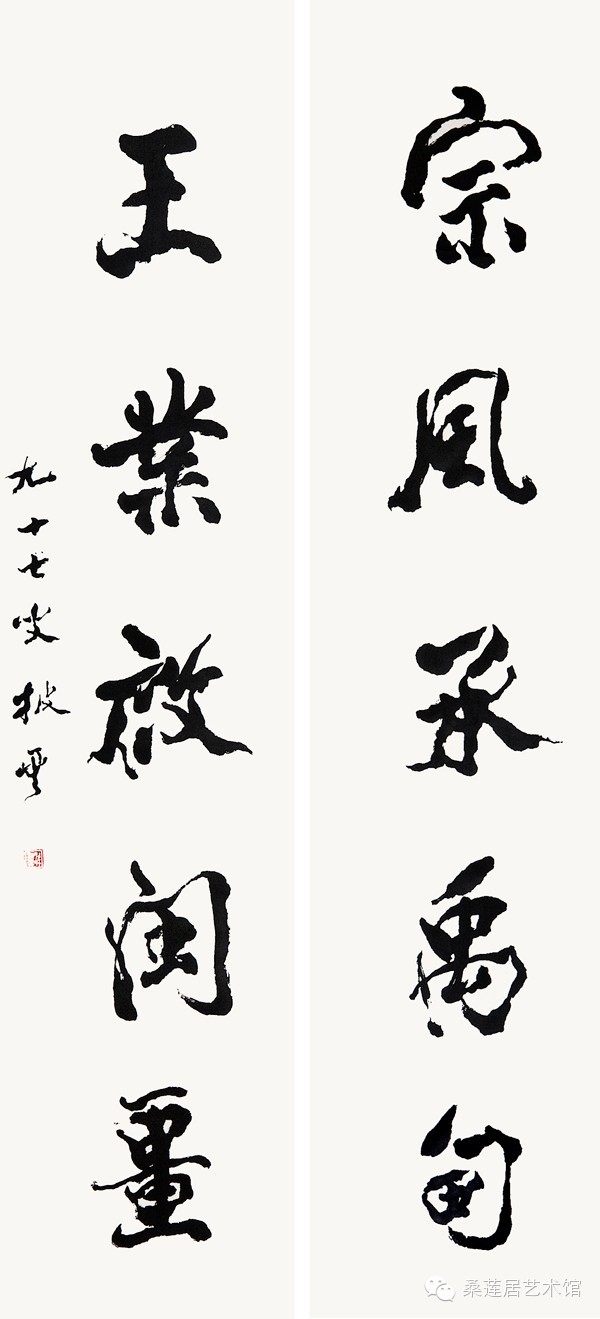 宗風承禹甸
王業啟閩畺
九十七叟披雲
桑莲居艺术馆